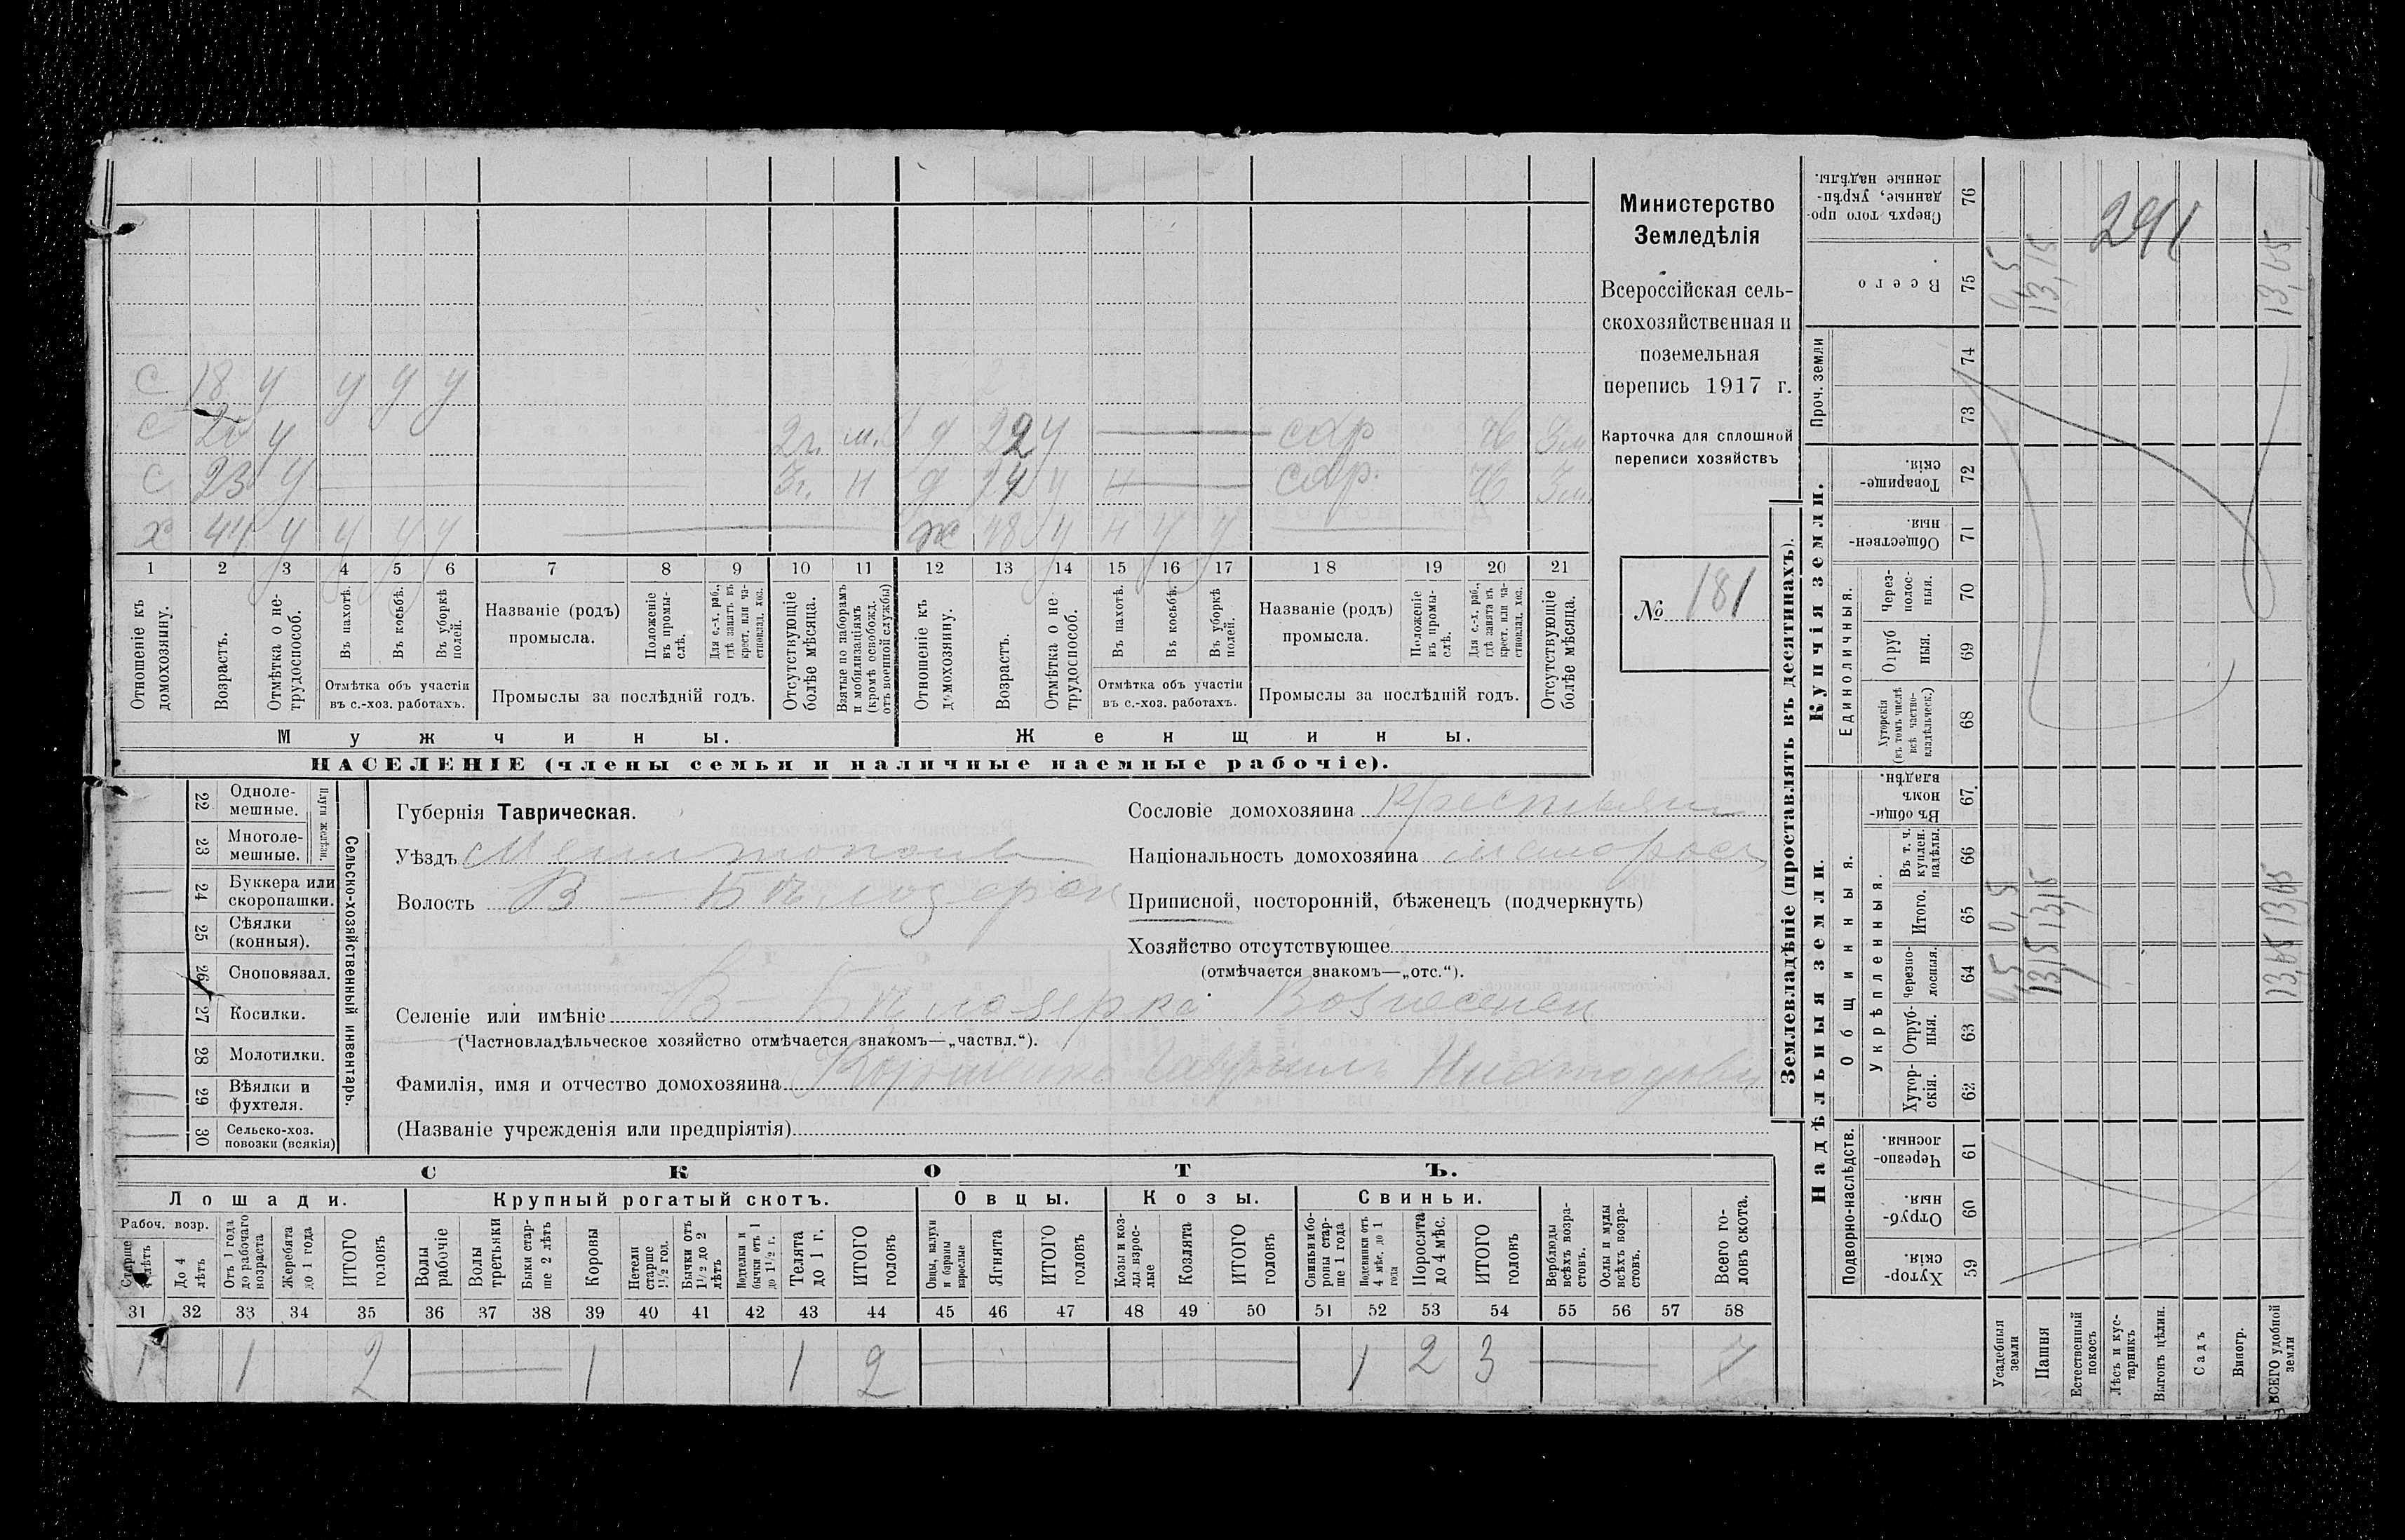 Министерство
Земледѣлія
Всероссійская сель-
скохозяйственная и
поземельная
перепись 1917 г.
Карточка для сплошной
переписи хозяйствъ
№ 181
291
с 18 у у у у
с у 2г. д 22 у сдр Зм
с 23 у 3г. н д у н сдр. Зм
х 44 у у у у ж 48 у н у у
1 2 3 4 5 6 7 8 9 10 11 12 13 14 15 16 17 18 19 20 21
Отношеніе къ домохозяину.
Возрастъ.
Отмѣтка о не-трудоспособ.
Въ пахотѣ.
Въ косьбѣ.
Въ уборкѣ полей.
Отмѣтка объ участіи
въ с.-хоз. работахъ.
Названіе (родъ)
промысла.
Положеніе въ промы-слѣ.
Для с.-х. раб., гдѣ занятъ въ крест. или ча-стновлад. хоз.
Промыслы за послѣдній годъ.
Отсутствующіе болѣе мѣсяца.
Взятые по наборамъ и мобилизаціямъ (кромѣ освобожд. отъ военной службы)
Отношеніе къ домохозяину.
Возрастъ.
Отмѣтка о не-трудоспособ.
Въ пахотѣ.
Въ косьбѣ.
Въ уборкѣ полей.
Отмѣтка объ участіи
въ с.-хоз. работахъ.
Названіе (родъ)
промысла.
Положеніе въ промы-слѣ.
Для с.-х. раб., гдѣ занята въ крест. или ча-стновлад. хоз.
Промыслы за послѣдній годъ.
Отсутствующіе болѣе мѣсяца.
Мужчины. Женщины.
НАСЕЛЕНІЕ (члены семьи и наличные наемные рабочіе).
Сельско-хозяйственный инвентарь.
Плуги желѣзн.
22 Одноле-мешные.
23 Многоле-мешные.
24 Буккера или скоропашки.
25 Сѣялки (конныя).
26 Сноповязал.
27 Косилки.
28 Молотилки.
29 Вѣялки и фухтеля.
30 Сельско-хоз. повозки (всякія)
Губернія Таврическая.
Уѣздъ Мелитополь
Волость В-Бѣлозерск
Сословіе домохозяина Крестьянин
Національность домохозяина малоросъ
Приписной, посторонній, бѣженецъ (подчеркнуть)
Хозяйство отсутствующее
(отмѣчается знакомъ—„отс.“).
Селеніе или имѣніе В-Бѣлозерка Вознесенск
(Частновладѣльческое хозяйство отмѣчается знакомъ—„частвл.“).
Фамилія, имя и отчество домохозяина Гавриилъ
(Названіе учрежденія или предпріятія)
СКОТЪ.
Лошади. Крупный рогатый скотъ. Овцы. Козы. Свиньи.
Рабоч. возр.
Старше 4 лѣтъ
До 4 лѣтъ
Отъ 1 года до рабочаго возраста
Жеребята до 1 года
ИТОГО головъ
Волы рабочіе
Волы третьяки
Быки стар-ше 2 лѣтъ
Коровы
Нетели старше 1½ год.
Бычки отъ 1½ до 2 лѣтъ
Подтелки и бычки отъ 1 до 1½ г.
Телята до 1 г.
ИТОГО головъ
Овцы, валухи и бараны взрослые
Ягнята
ИТОГО головъ
Козы и коз-лы взрос-лые
Козлята
ИТОГО головъ
Свиньи и бо-ровы стар-ше 1 года
Подсвинки отъ 4 мѣс. до 1 года
Поросята до 4 мѣс.
ИТОГО головъ
Верблюды всѣхъ возра-стовъ.
Ослы и мулы всѣхъ возра-стовъ.
Всего го-ловъ скота.
31 32 33 34 35 36 37 38 39 40 41 42 43 44 45 46 47 48 49 50 51 52 53 54 55 56 57 58
1 1 2 1 1 2 1 2 3 7
Землевладѣніе (проставлять въ десятинахъ).
Купчія земли.
Надѣльныя земли.
Сверхъ того про-данные, укрѣп-ленные надѣлы. 76
Всего 75 0,5 13,15 13,65
Проч. земли 74 73
Товарище-скія. 72
Обществен-ныя. 71
Единоличныя.
Через-полос-ныя. 70
Отруб-ныя. 69
Хуторскія (въ томъ числѣ всѣ частно-владѣльческ.) 68
Общинныя.
Въ общин-номъ владѣн. 67
Укрѣпленныя.
Въ т. ч. куплен. надѣлы. 66
Итого. 65 0,5 13,15 13,65
Черезпо-лосныя. 64 0,5 13,15 13,65
Отруб-ныя. 63
Хутор-скія. 62
Подворно-наслѣдств.
Черезпо-лосныя. 61
Отруб-ныя. 60
Хутор-скія. 59
Усадебныя земли
Пашня
Естественный покосъ
Лѣсъ и кус-тарникъ
Выгонъ цѣлин.
Садъ
Виногр.
ВСЕГО удобной земли